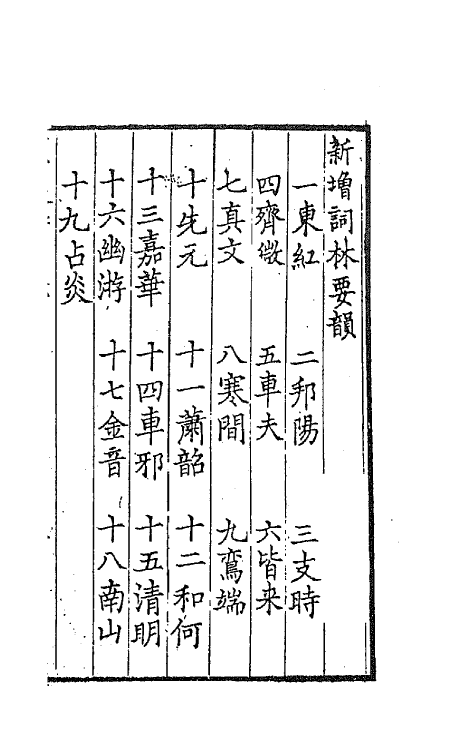 新增詞林要韻
一東紅 二邦陽 三支時
四齊微 五車夫 六皆来
七真文 八寒間 九鸞端
十先元 十一蕭韶 十二和何
十三嘉華 十四車邪 十五清明
十六幽游 十七金音 十八南山
十九占炎